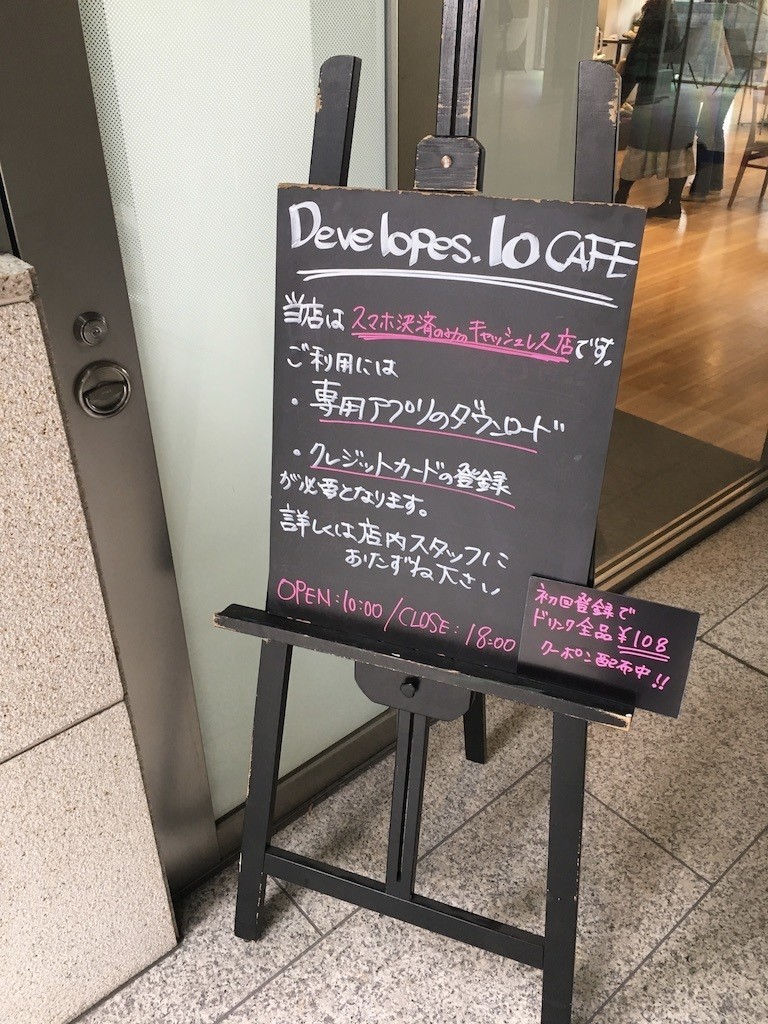 Develepes.Io CAFE
当店はスマホ決済のみのキャッシュレス店です。
ご利用には
・専用アプリのダウンロード
・クレジットカードの登録
が必要となります。
詳しくは店内スタッフに
おたずね下さい
OPEN:10:00/CLOSE:18:00
初回登録で
ドリンク全品¥108
クーポン配布中!!